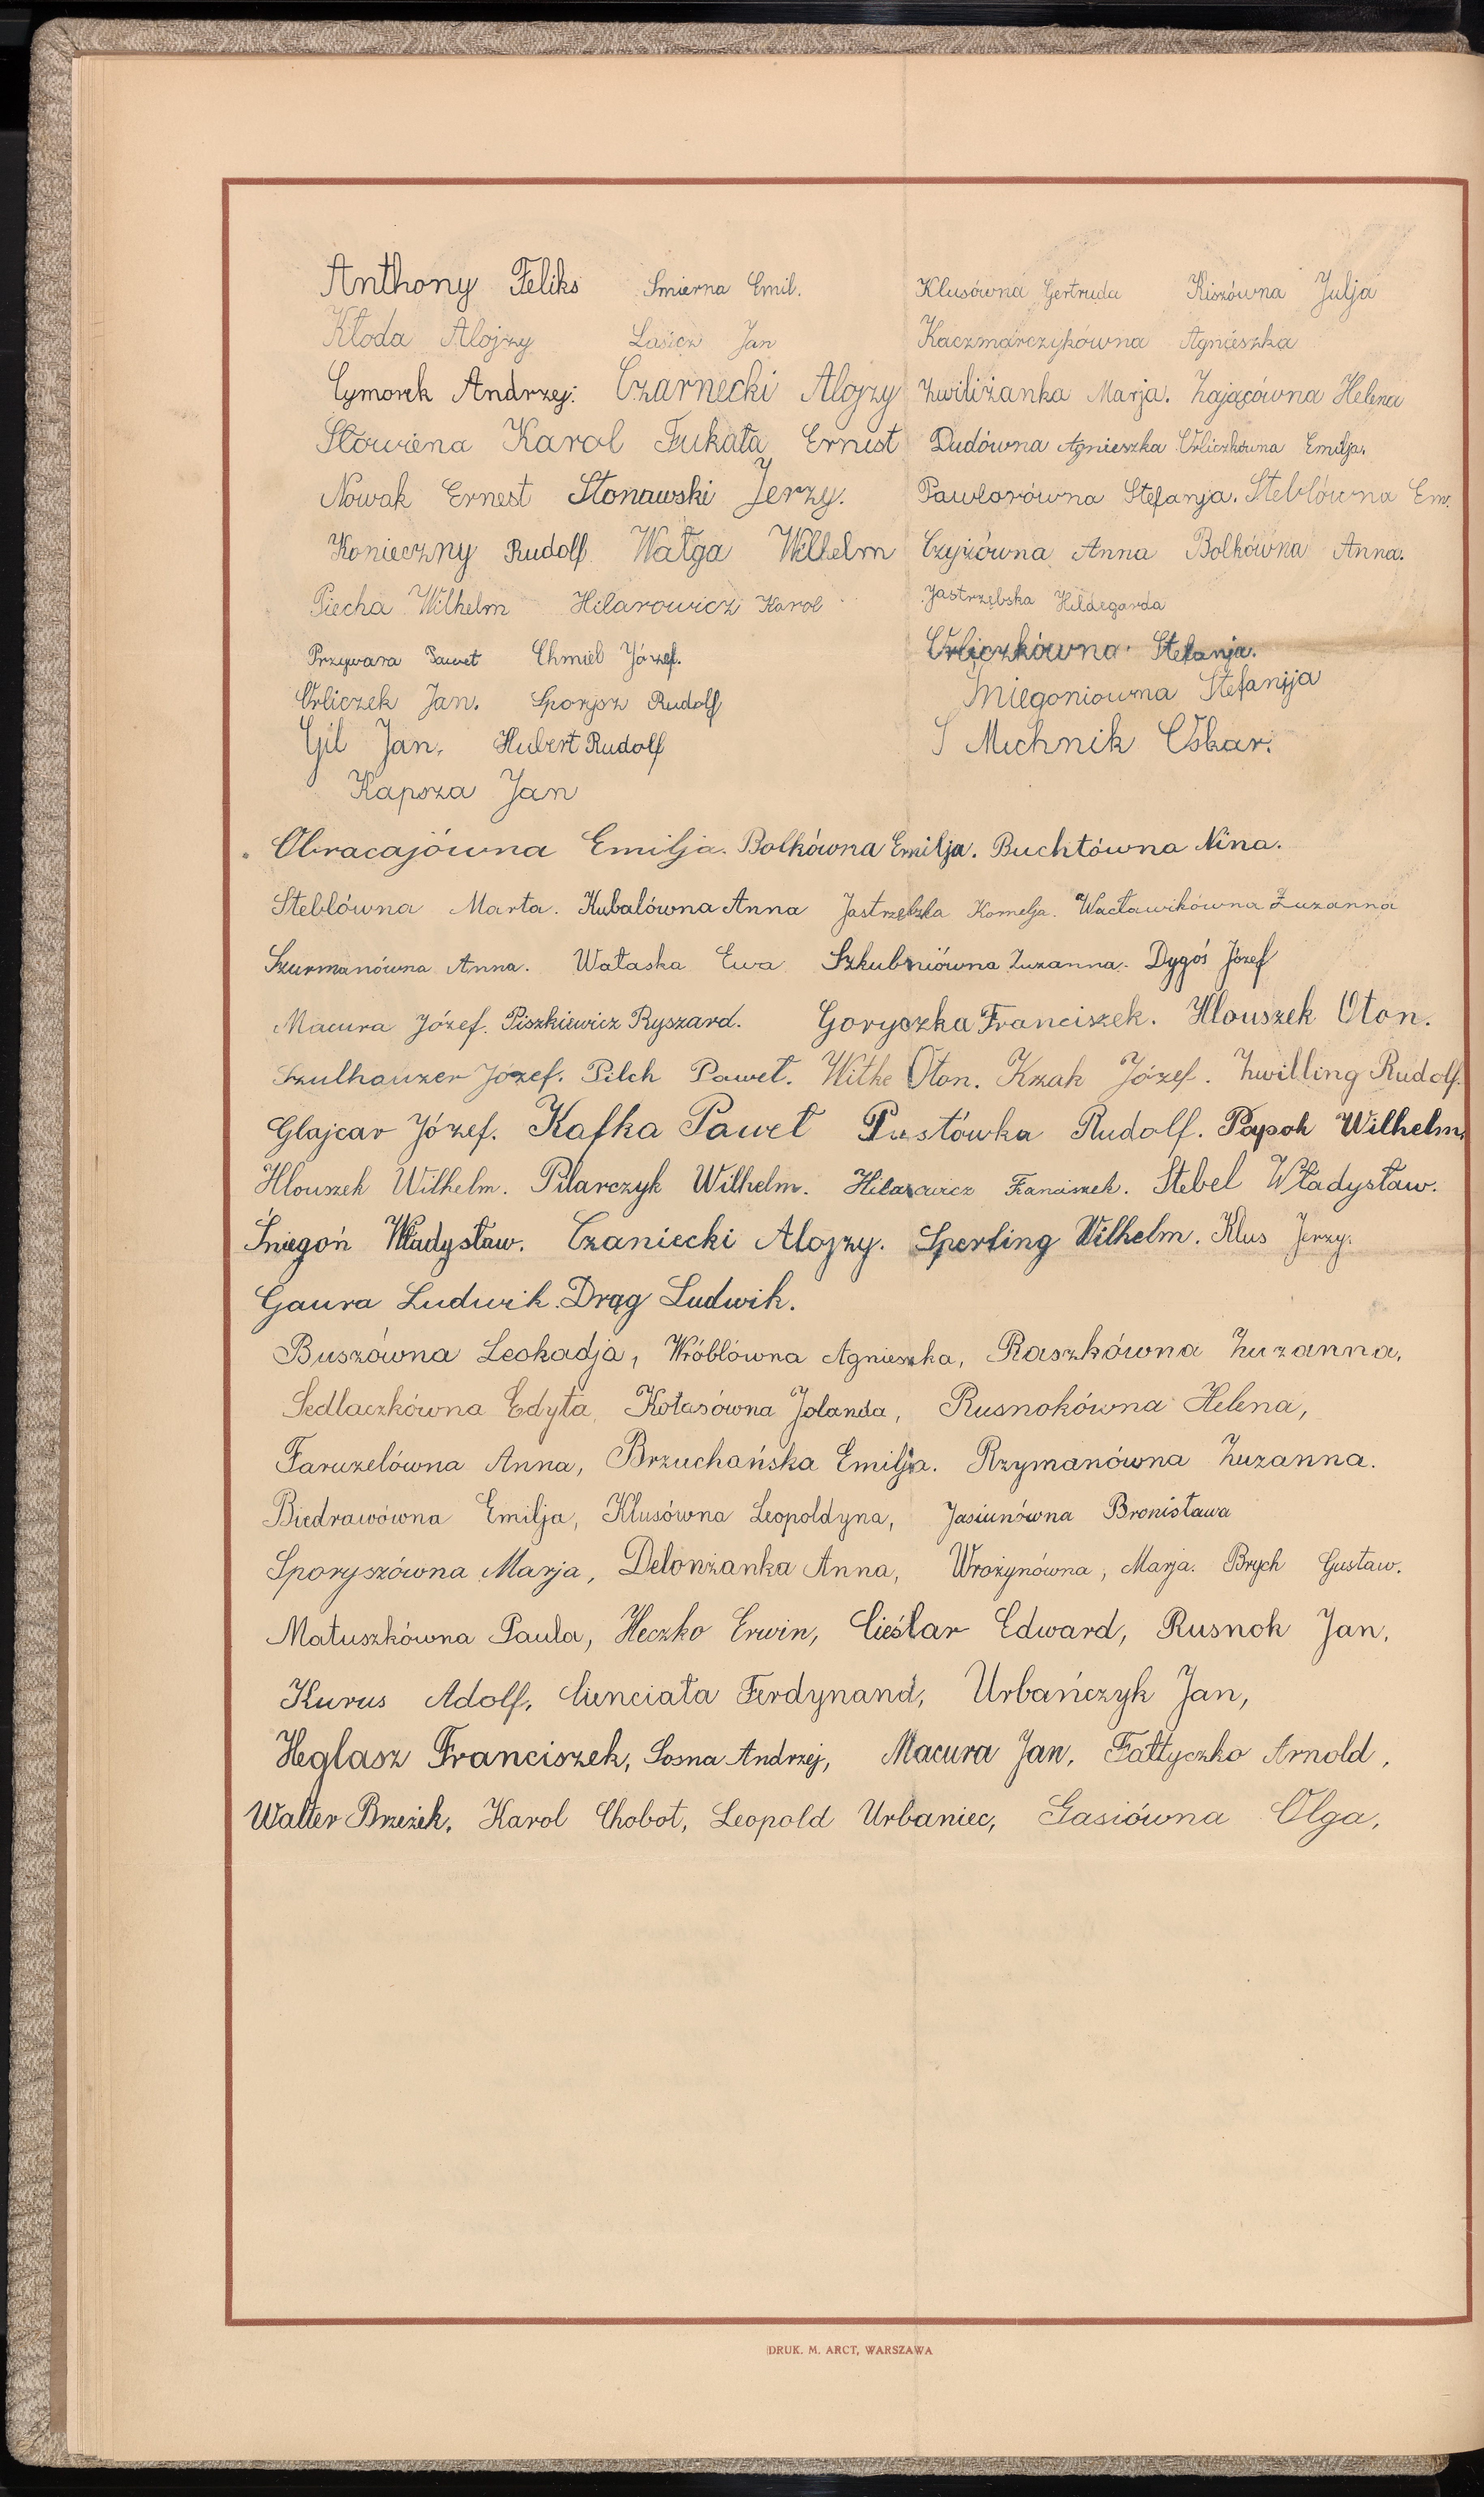 Anthony Feliks Smierna Emil. Klusówna Gertruda Kiszówna Julja
Kłoda Alojzy Lasicz Jan Kaczmarczykówna Agnieszka
Cymorek Andrzej. Czarnecki Alojzy Zwiliżanka Marja. Zającówna Helena
Słowiena Karol Fukała Ernest Dudówna Agnieszka Urliczkówna Emilja.
Nowak Ernest Stonawski Jerzy. Pawlorówna Stefanja. Steblówna Em.
Konieczny Rudolf Wałga Wilhelm Czyżówna Anna Bolkówna Anna.
Piecha Wilhelm Hilarowicz Karol Jastrzębska Hildegarda
Przywara Paweł Chmiel Józef. Urliczkówna Stefanja.
Urliczek Jan. Sporysz Rudolf Śniegoniowna Stefanija
Gil Jan. Hubert Rudolf Michnik Oskar.
Kapsza Jan
Obracajówna Emilja. Bolkówna Emilja. Buchtówna Nina.
Steblówna Marta. Kubalówna Anna Jastrzębska Kornelja. Wacławikówna Zuzanna
Szurmanówna Anna. Wałaska Ewa Szkubniówna Zuzanna. Dygoś Józef
Macura Józef. Piszkiewicz Ryszard. Goryczka Franciszek. Hlouszek Oton.
Szulhauzer Jozef. Pilch Paweł. Withe Oton. Kzak Józef. Zwilling Rudolf.
Glajcar Józef. Kafka Paweł Pustówka Rudolf. Papok Wilhelm.
Hlouszek Wilhelm. Pilarczyk Wilhelm. Hilarowicz Franciszek. Stebel Władysław.
Śniegoń Władysław. Czaniecki Alojzy. Sperling Wilhelm. Klus Jerzy.
Gaura Ludwik. Drąg Ludwik.
Buszówna Leokadja, Wróblówna Agnieszka, Raszkówna Zuzanna,
Sedlaczkówna Edyta, Kotasówna Jolanda, Rusnokówna Helena,
Faruzelówna Anna, Brzuchańska Emilja. Rzymanówna Zuzanna.
Biedrawówna Emilja, Klusówna Leopoldyna, Jasiunówna Bronisława
Sporyszówna Marja, Delonżanka Anna, Wrożynówna, Marja. Brych Gustaw.
Matuszkówna Paula, Heczko Erwin, Cieślar Edward, Rusnok Jan,
Kurus Adolf, Cienciała Ferdynand, Urbańczyk Jan,
Heglasz Franciszek, Sosna Andrzej, Macura Jan, Fałtyczko Arnold,
Walter Brzeżek, Karol Chobot, Leopold Urbaniec, Gasiówna Olga,
DRUK. M. ARCT, WARSZAWA